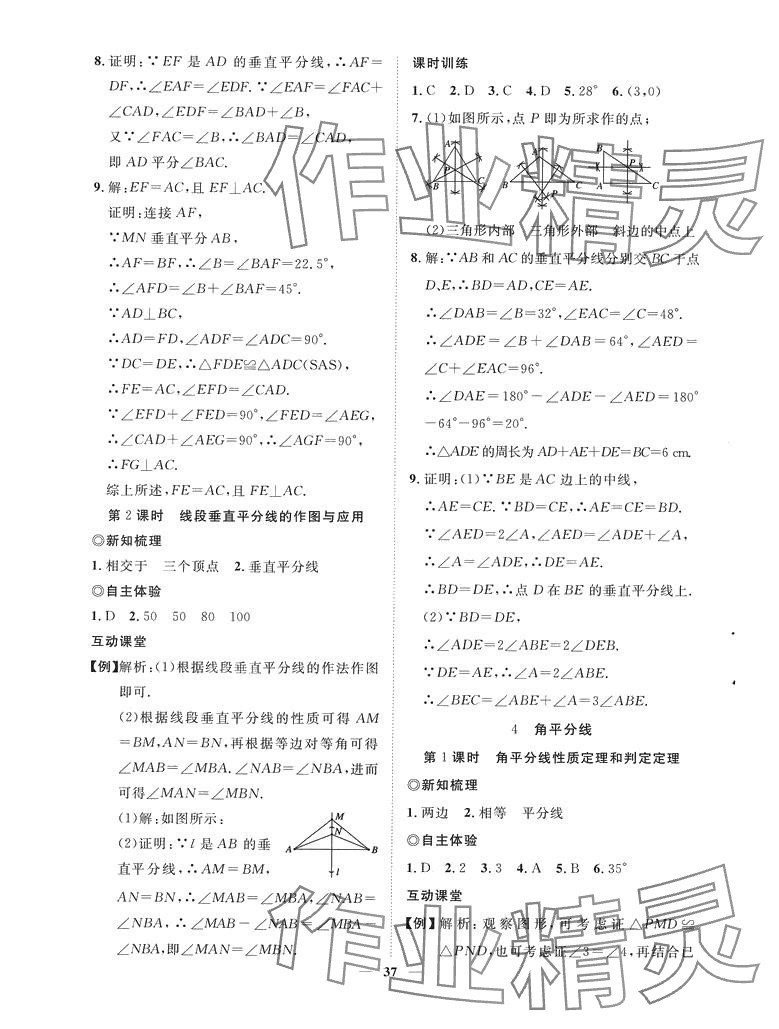 8.证明:∵EF 是 AD 的垂直平分线,∴AF=
DF,∴∠EAF=∠EDF.∵∠EAF=∠FAC+
∠CAD,∠EDF=∠BAD+∠B,
又∵∠FAC=∠B,∴∠BAD=∠CAD,
即 AD 平分∠BAC.
9.解:EF=AC,且 EF⊥AC.
证明:连接 AF,
∵MN 垂直平分 AB,
∴AF=BF,∴∠B=∠BAF=22.5°,
∴∠AFD=∠B+∠BAF=45°.
∵AD⊥BC,
∴AD=FD,∠ADF=∠ADC=90°.
∵DC=DE,∴△FDE≌△ADC(SAS),
∴FE=AC,∠EFD=∠CAD.
∵∠EFD+∠FED=90°,∠FED=∠AEG,
∴∠CAD+∠AEG=90°,∴∠AGF=90°.
∴FG⊥AC.
综上所述,FE=AC,且 FE⊥AC.
第 2 课时 线段垂直平分线的作图与应用
◎新知梳理
1.相交于 三个顶点 2.垂直平分线
◎自主体验
1.D 2.50 50 80 100
互动课堂
【例】解析:(1)根据线段垂直平分线的作法作图
即可.
(2)根据线段垂直平分线的性质可得 AM
=BM,AN=BN,再根据等边对等角可得
∠MAB=∠MBA.∠NAB=∠NBA,进而
可得∠MAN=∠MBN.
(1)解:如图所示:
(2)证明:∵l 是 AB 的垂
直平分线,∴AM=BM,
AN=BN,∴∠MAB=∠MBA,∠NAB=
∠NBA,∴∠MAB-∠NAB=∠MBA-
∠NBA,即∠MAN=∠MBN.
M
N
A
B
l
课时训练
1.C 2.D 3.C 4.D 5.28° 6.(3,0)
7.(1)如图所示,点 P 即为所求作的点;
A P B C
A B C P
B P A C
(2)三角形内部 三角形外部 斜边的中点上
8.解:∵AB 和 AC 的垂直平分线分别交 BC 于点
D、E,∴BD=AD,CE=AE.
∴∠DAB=∠B=32°,∠EAC=∠C=48°.
∴∠ADE=∠B+∠DAB=64°,∠AED=
∠C+∠EAC=96°.
∴∠DAE=180°-∠ADE-∠AED=180°
-64°-96°=20°.
∴△ADE 的周长为 AD+AE+DE=BC=6 cm.
9.证明:(1)∵BE 是 AC 边上的中线,
∴AE=CE.∵BD=CE,∴AE=CE=BD.
∵∠AED=2∠A,∠AED=∠ADE+∠A,
∴∠A=∠ADE,∴DE=AE.
∴BD=DE,∴点 D 在 BE 的垂直平分线上.
(2)∵BD=DE,
∴∠ADE=2∠ABE=2∠DEB.
∵DE=AE,∴∠A=2∠ABE.
∴∠BEC=∠ABE+∠A=3∠ABE.
4 角平分线
第 1 课时 角平分线性质定理和判定定理
◎新知梳理
1.两边 2.相等 平分线
◎自主体验
1.D 2.2 3.3 4.A 5.B 6.35°
互动课堂
【例】解析:观察图形,可考虑证△PMD≌
△PND,也可考虑证∠3=∠4,再结合已
37
作业精灵
作业精灵